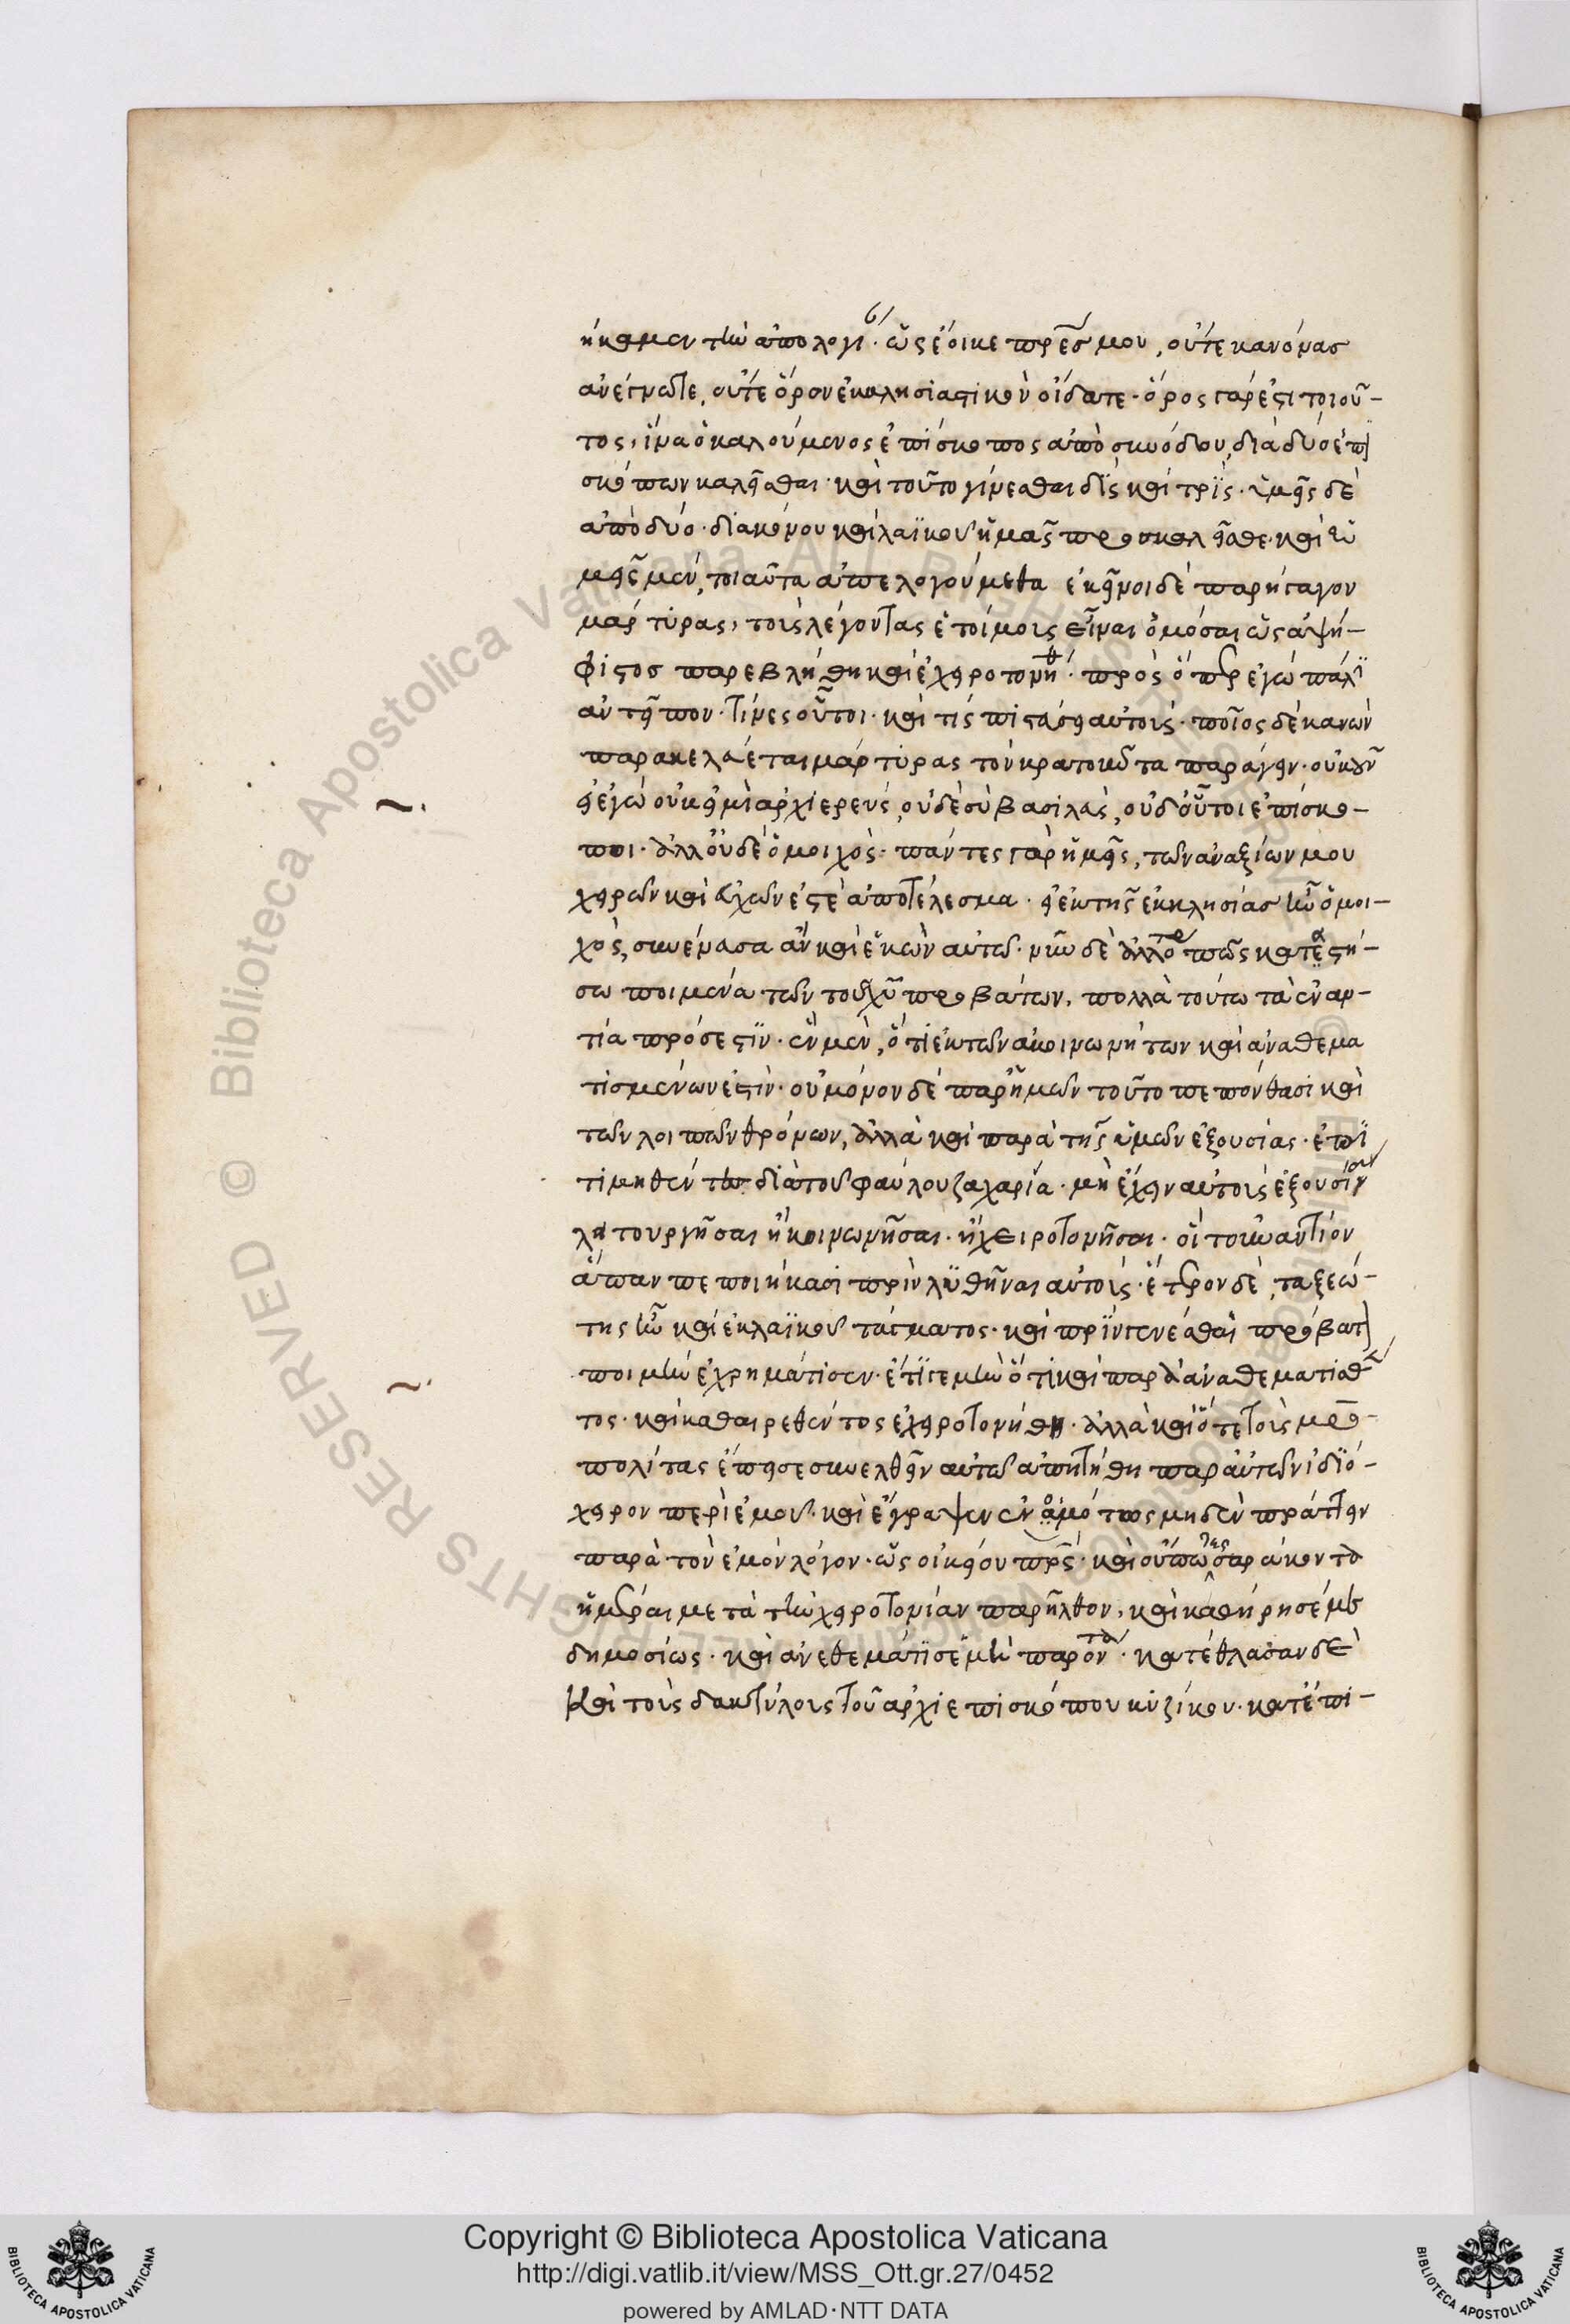 ήκαμεν τὴν ἀπολογί· ὡς ἔοικε πρεσ μου, οὔτε κανόνας
ἀνέγνωτε, οὔτε ὅρον ἐκκλησιαστικὸν οἴδατε· ὅρος γάρ ἐστι τοιοῦ-
τος, ἵνα ὁ καλούμενος ἐπίσκοπος ἀπὸ συνόδου, διὰ δύο ἐπι
σκόπων καλεῖσθαι· καὶ τοῦτο γίνεσθαι δὶς καὶ τρίς· ὑμεῖς δὲ
ἀπὸ δύο· διακόνου καὶ λαϊκοῦ ἡμᾶς προσκαλεῖσθε· καὶ ἡ
μεῖς μὲν, τοιαῦτα ἀπελογούμεθα ἐκεῖνοι δὲ παρήγαγον
μάρτυρας, τοὺς λέγοντας ἑτοίμους εἶναι ὀμόσαι ὡς ἀψή-
φιστος παρεβλήθη καὶ ἐχειροτονήθ· πρὸς ὅπερ ἐγὼ πάλι
ἀντεῖπον· τίνες οὗτοι· καὶ τίς πιστεύσει αὐτοῖς· ποῖος δὲ κανὼν
παρακελεύεται μάρτυρας τὸν κρατοῦντα παράγειν· οὐκοῦν
εἰ ἐγὼ οὐκ εἰμὶ ἀρχιερεύς, οὐδὲ σὺ βασιλεύς, οὐδ οὗτοι ἐπίσκο-
ποι· ἀλλ οὐδὲ ὁ μοιχὸς· πάντες γὰρ ἡμεῖς, τῶν ἀναξίων μου
χειρῶν καὶ εὐχῶν ἐστὲ ἀποτέλεσμα· εἰ ἐκ τῆς ἐκκλησίας ἦν ὁ μοι-
χὸς, συνένευσα ἂν καὶ ἑκὼν αὐτῶ· νῦν δὲ ἀλλότρ πῶς καταστή-
σω ποιμένα τῶν τοῦ χυ προβάτων, πολλὰ τούτω τὰ ἐναν-
τία πρόσεστιν· ἓν μὲν, ὅτι ἐκ τῶν ἀκοινωνήτων καὶ ἀναθεμα
τισμένων ἐστὶν· οὐ μόνον δὲ παρ ἡμῶν τοῦτο πεπόνθασι καὶ
τῶν λοιπῶν θρόνων, ἀλλὰ καὶ παρὰ τῆς ὑμῶν ἐξουσίας· ἐπι
τιμηθέντων διὰ τοῦ φαύλου ζαχαρία· μὴ ἔχειν αὐτοὺς ἐξουσίαν
λητουργῆσαι ἢ κοινωνῆσαι· ἢ χειροτονῆσαι· οἳ τουναντίον
ἅπαν πεποιήκασι πρὶν λυθῆναι αὐτοὺς· ἕτερον δὲ, ταξεώ-
της ἦν καὶ ἐκ λαϊκοῦ τάγματος· καὶ πρὶν γενέσθαι πρόβατ
ποιμὴν ἐχρημάτισεν· ἔτι γε μὴν ὅτι καὶ παρ ἀναθεματισθ
τος· καὶ καθαιρεθέντος ἐχειροτονήθη· ἀλλὰ καὶ ὅτε τοὺς μρο-
πολίτας ἔπεισε συνελθεῖν αὐτῶ ἀπητήθη παρ αὐτῶν ἰδιό-
χειρον περὶ ἐμοῦ· καὶ ἔγραψεν ἐν ὀμότως μηδὲν πράττειν
παρὰ τὸν ἐμὸν λόγον· ὡς οἰκείου πρς· καὶ οὔπω τεσσαράκοντα
ἡμέραι μετὰ τὴν χειροτονίαν παρῆλθον, καὶ καθήρησέ με
δημοσίως· καὶ ἀνεθεμάτισέ μὴ παρόντα· κατέθλασαν δὲ
Καὶ τοὺς δακτύλους τοῦ ἀρχιεπισκόπου κυζίκου· κατέπι-
Copyright © Biblioteca Apostolica Vaticana
http://digi.vatlib.it/view/MSS_Ott.gr.27/0452
powered by AMLAD·NTT DATA
BIBLIOTECA APOSTOLICA VATICANA
BIBLIOTECA APOSTOLICA VATICANA